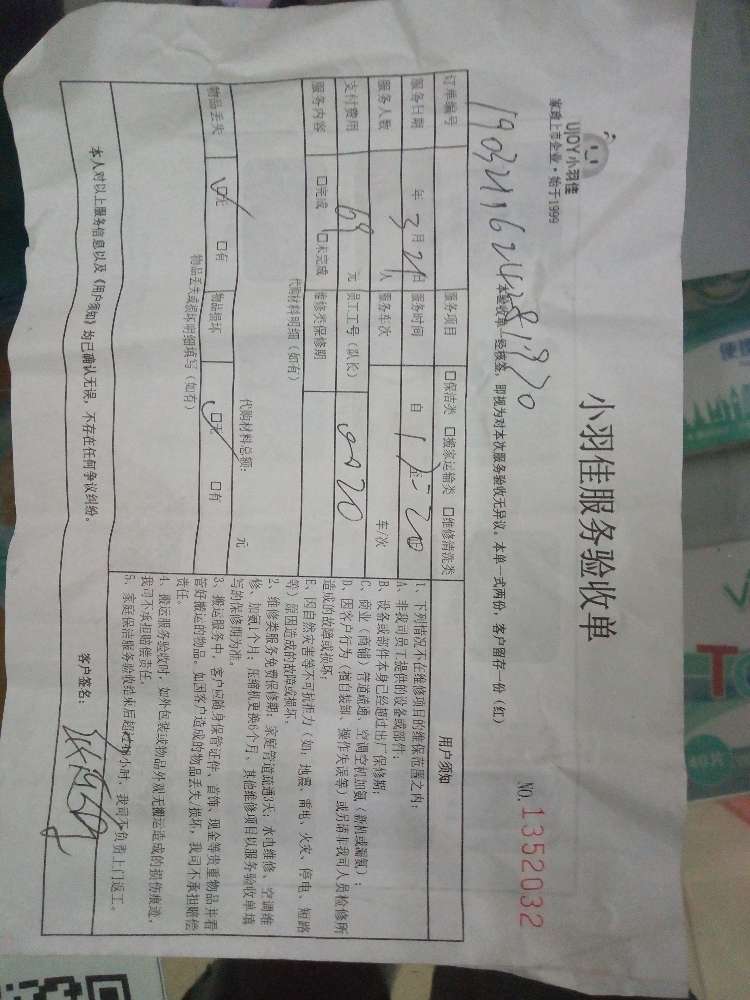 UJOY小羽佳
家政上市企业·始于1999
小羽佳服务验收单
NO.1352032
本验收单一经核签，即视为对本次服务验收无异议。本单一式两份，客户留存一份（红）
订单编号
服务项目 □保洁类 □搬家运输类 □维修清洗类
服务日期 年 3 月 21 日 服务时间 自
服务人数 人 服务车次 车/次
支付费用 69 元 员工工号（队长）
服务内容 □完成 □未完成 维修类保修期
代购材料明细（如有）
代购材料总额： 元
物品丢失 □无 □有 物品损坏 □无 □有
物品丢失或损坏明细填写（如有）
用户须知
1、下列情况不在维修项目的维保范围之内：
A、非我司员工提供的设备或部件；
B、设备或部件本身已经超过出厂保修期；
C、商业（商铺）管道疏通、空调空机加氨（新机或漏氨）；
D、因客户行为（擅自装卸、操作失误等）或另请非我司人员检修所
造成的故障或损坏；
E、因自然灾害等不可抗拒力（如：地震、雷电、火灾、停电、短路
等）原因造成的故障或损坏。
2、维修类服务免费保修期：家庭管道疏通3天，水电维修、空调维
修、加氨1个月；压缩机更换6个月，其他维修项目以服务验收单填
写的保修期为准。
3、搬运服务中，客户应随身保管证件、首饰、现金等贵重物品并看
管好搬运的物品。如因客户造成的物品丢失/损坏，我司不承担赔偿
责任。
4、搬运服务验收时，如外包装或物品外观无搬运造成的损伤痕迹，
我司不承担赔偿责任。
5、家庭保洁服务验收结束后超过48小时，我司不负责上门返工。
本人对以上服务信息以及《用户须知》均已确认无误，不存在任何争议纠纷。
客户签名：